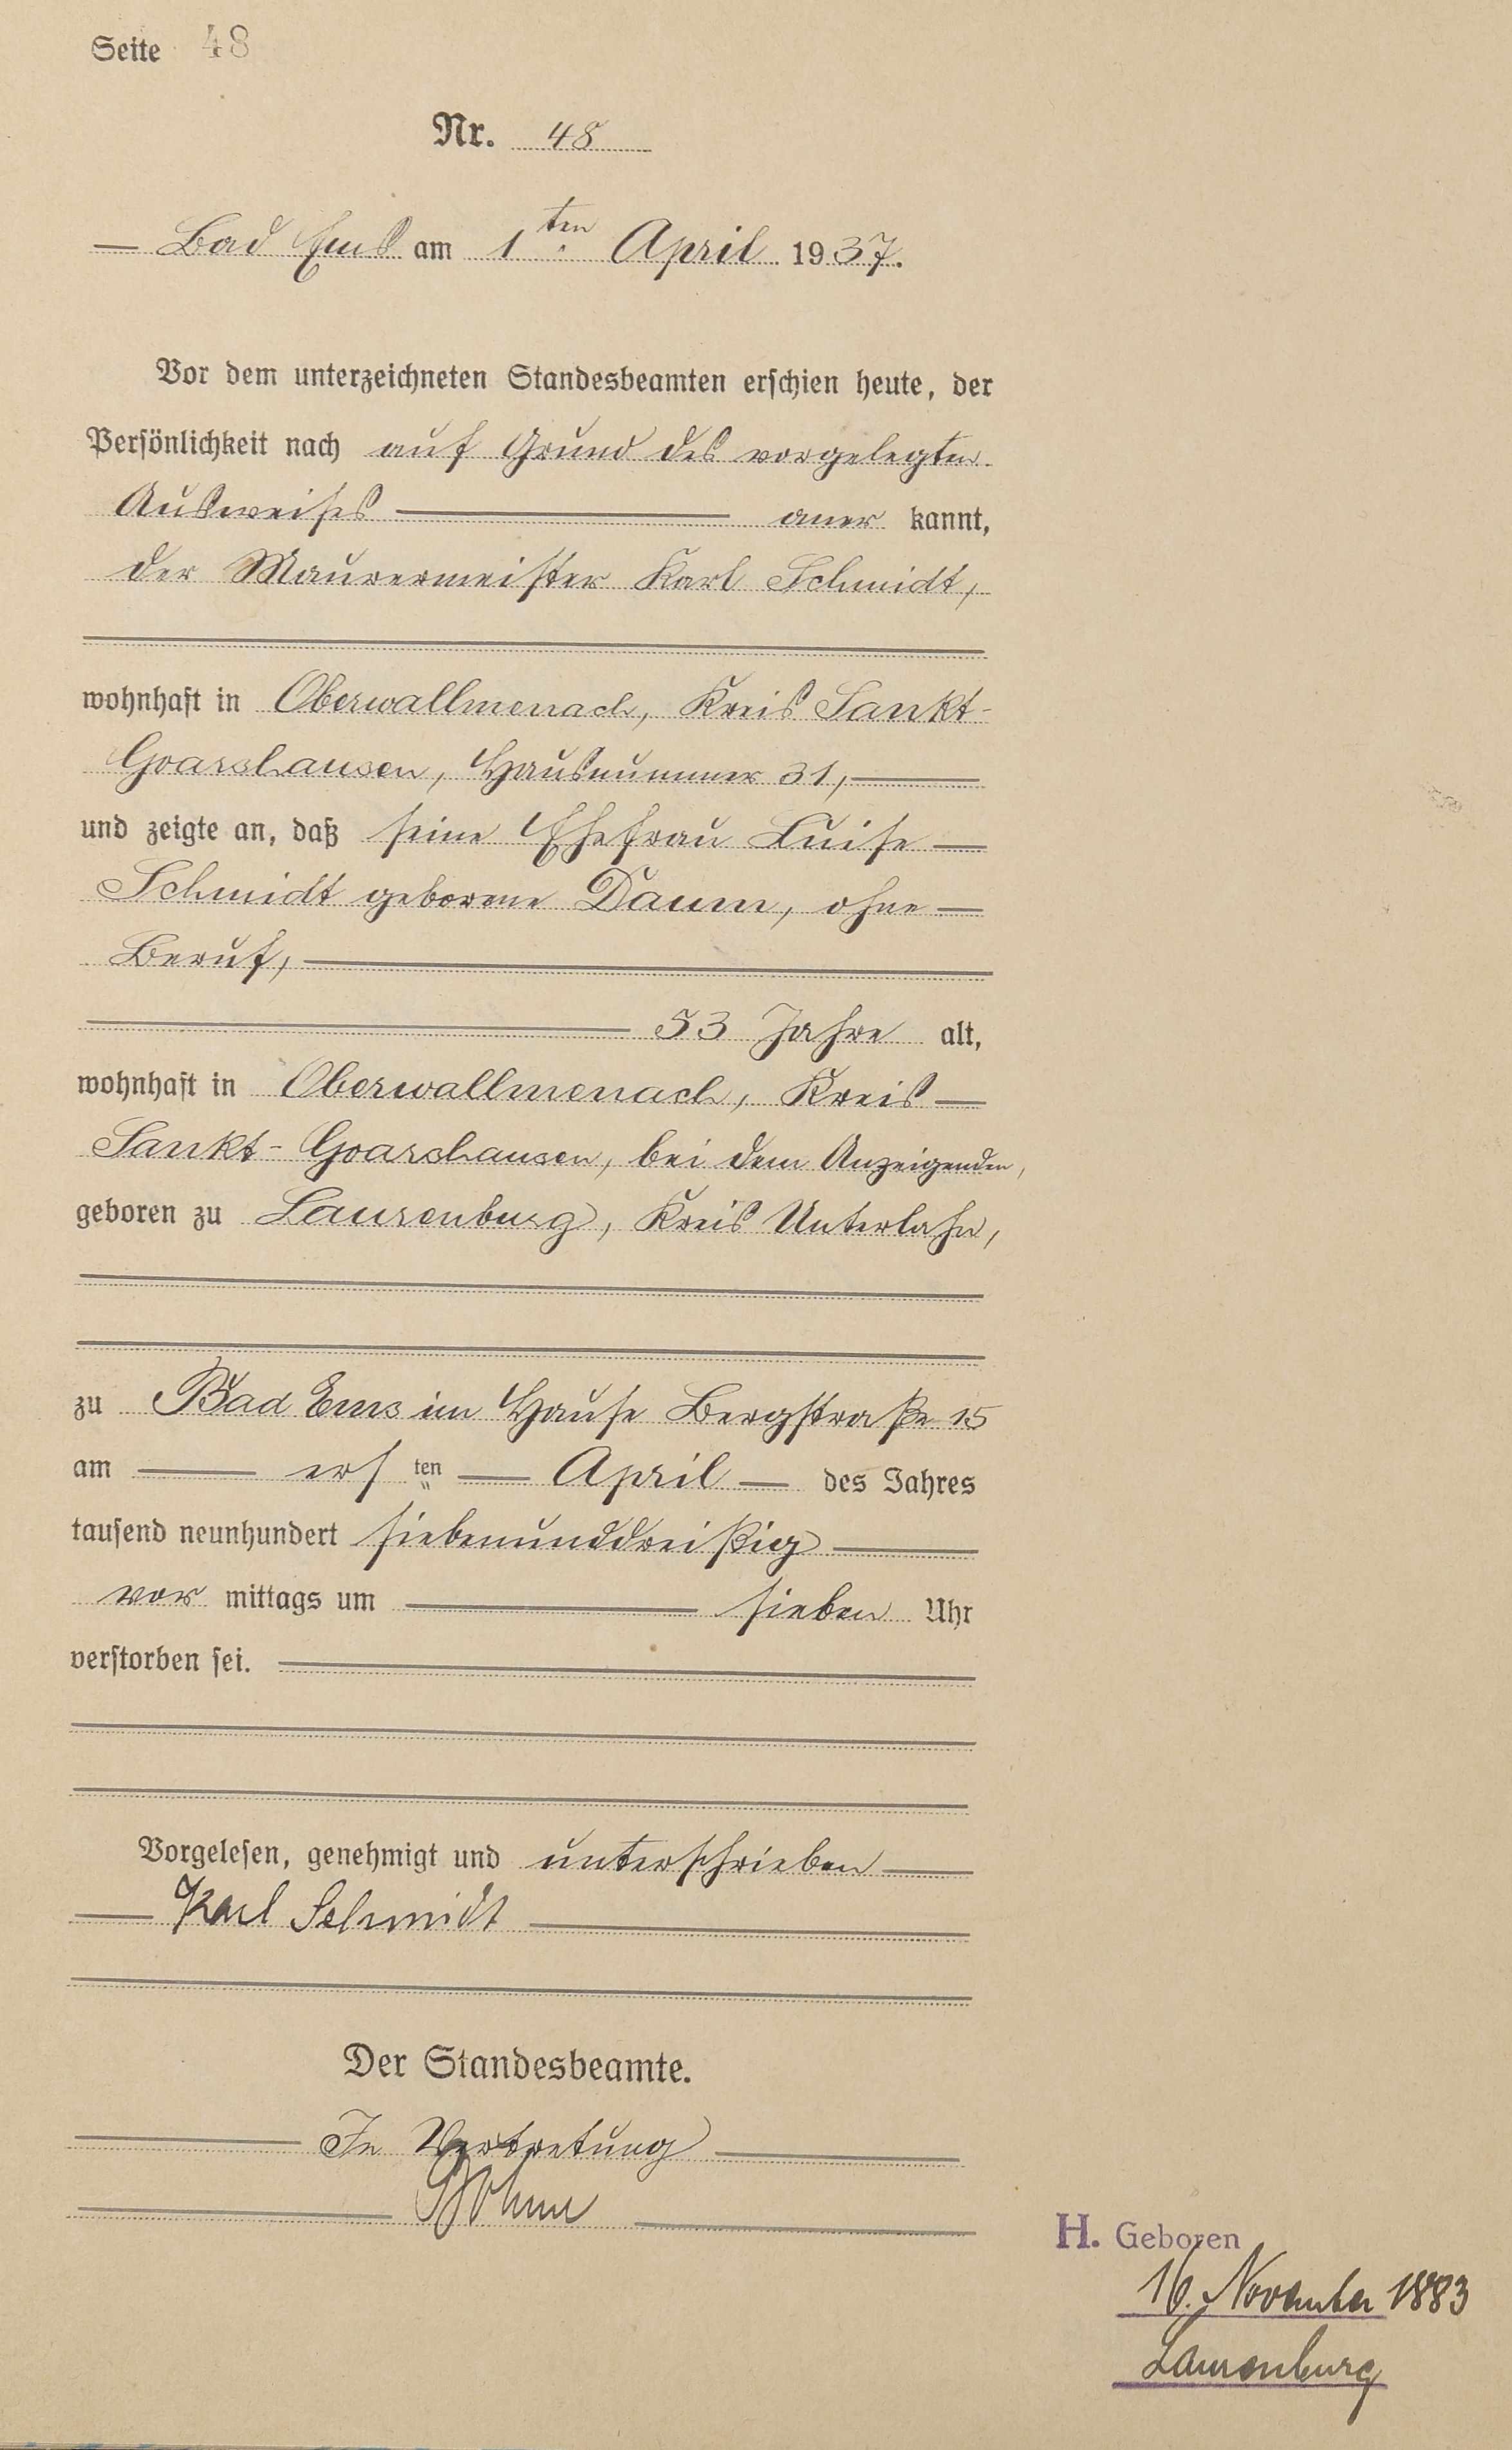 Seite 48
Nr. 48
— Bad Ems am 1ten April 1937.
Vor dem unterzeichneten Standesbeamten erschien heute, der
Persönlichkeit nach auf Grund des vorgelegten
Ausweises — aner kannt,
der Maurermeister Karl Schmidt,
wohnhaft in Oberwallmenach, Kreis Sankt-
Goarshausen, Hausnummer 31, —
und zeigte an, daß seine Ehefrau Luise —
Schmidt geborene Daum, ohne —
Beruf, —
— 53 Jahre alt,
wohnhaft in Oberwallmenach, Kreis —
Sankt-Goarshausen, bei dem Anzeigenden,
geboren zu Laurenburg, Kreis Unterlahn,
zu Bad Ems im Hause Bergstraße 15
am — ersten — April — des Jahres
tausend neunhundert siebenunddreißig —
vor mittags um — sieben Uhr
verstorben sei. —
Vorgelesen, genehmigt und unterschrieben —
— Karl Schmidt —
Der Standesbeamte.
— In Vertretung —
H. Geboren
16. November 1883
Laurenburg